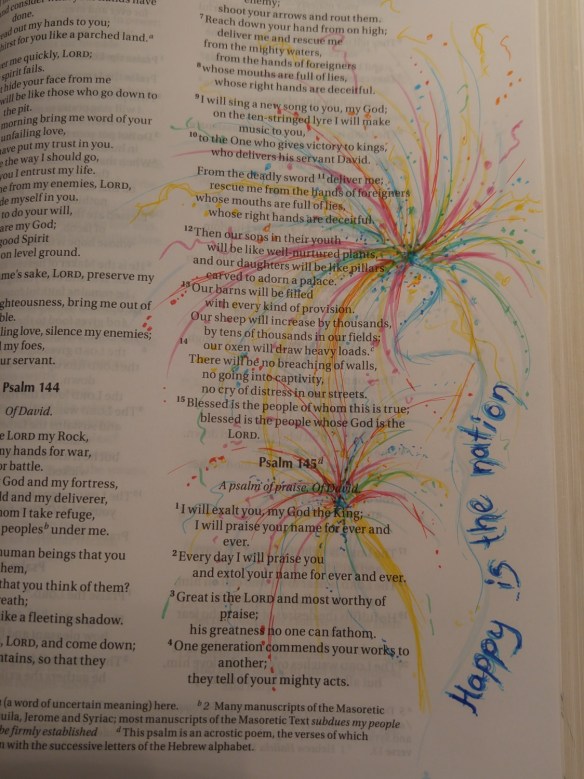 done.
out my hands to you;
for you like a parched land.ᵃ
me quickly, LORD;
spirit fails.
hide your face from me
will be like those who go down to
the pit.
morning bring me word of your
unfailing love,
have put my trust in you.
the way I should go,
you I entrust my life.
from my enemies, LORD,
myself in you.
to do your will,
are my God;
good Spirit
on level ground.
name's sake, LORD, preserve my
righteousness, bring me out of
love, silence my enemies;
my foes,
your servant.
Psalm 144
Of David.
LORD my Rock,
my hands for war,
battle.
God and my fortress,
and my deliverer,
whom I take refuge,
peoplesᵇ under me.
human beings that you
them,
that you think of them?
breath;
like a fleeting shadow.
LORD, and come down;
so that they
enemy;
shoot your arrows and rout them.
⁷Reach down your hand from on high;
deliver me and rescue me
from the mighty waters,
from the hands of foreigners
⁸whose mouths are full of lies,
whose right hands are deceitful.
⁹I will sing a new song to you, my God;
on the ten-stringed lyre I will make
music to you,
¹⁰to the One who gives victory to kings,
who delivers his servant David.
From the deadly sword ¹¹deliver me;
rescue me from the hands of foreigners
whose mouths are full of lies,
whose right hands are deceitful.
¹²Then our sons in their youth
will be like well-nurtured plants,
and our daughters will be like pillars
carved to adorn a palace.
¹³Our barns will be filled
with every kind of provision.
Our sheep will increase by thousands,
by tens of thousands in our fields;
¹⁴ our oxen will draw heavy loads.ᶜ
There will be no breaching of walls,
no going into captivity,
no cry of distress in our streets.
¹⁵Blessed is the people of whom this is true;
blessed is the people whose God is the
LORD.
Psalm 145ᵈ
A psalm of praise. Of David.
¹I will exalt you, my God the King;
I will praise your name for ever and
ever.
²Every day I will praise you
and extol your name for ever and ever.
³Great is the LORD and most worthy of
praise;
his greatness no one can fathom.
⁴One generation commends your works to
another;
they tell of your mighty acts.
Happy is the nation
(a word of uncertain meaning) here. ᵇ2 Many manuscripts of the Masoretic
Jerome and Syriac; most manuscripts of the Masoretic Text subdues my people
be firmly established ᵈ This psalm is an acrostic poem, the verses of which
with the successive letters of the Hebrew alphabet.